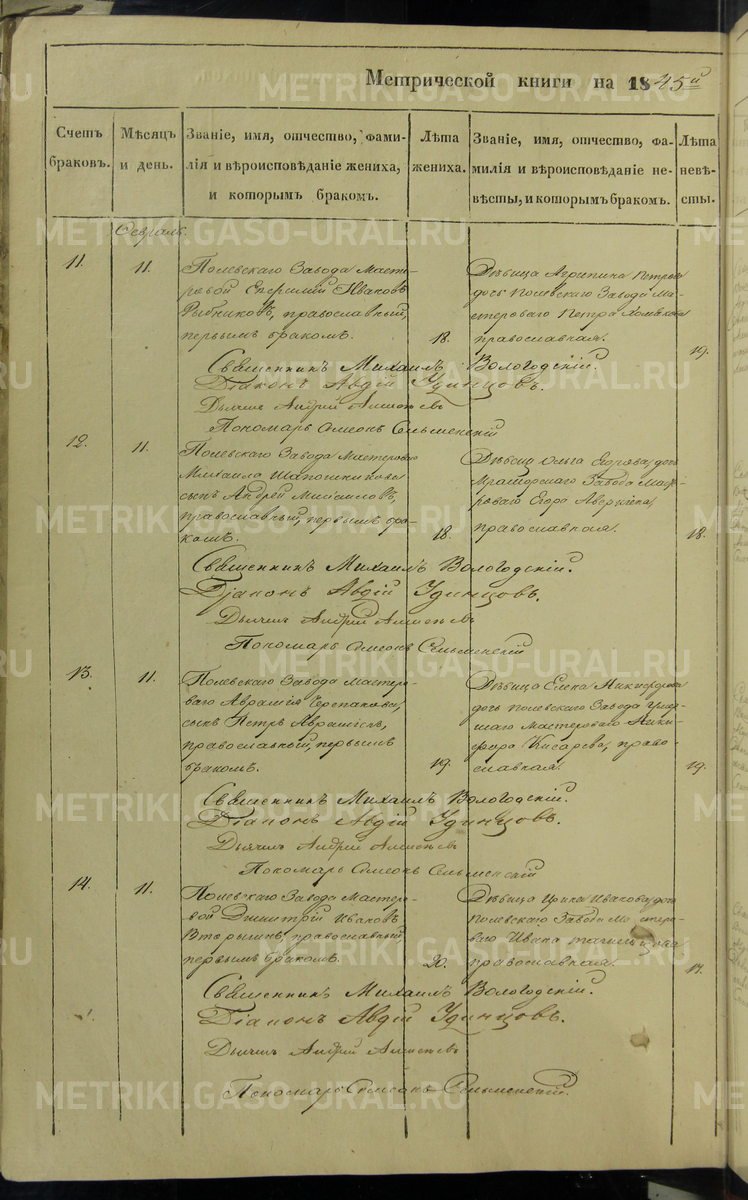 Метрической книги на 1845й
Счетъ браковъ.
Мѣсяцъ и день.
Званіе, имя, отчество, фами-
лія и вѣроисповѣданіе жениха,
и которымъ бракомъ.
Лѣта жениха.
Званіе, имя, отчество, фа-
милія и вѣроисповѣданіе не-
вѣсты, и которымъ бракомъ.
Лѣта невѣ-
сты.
Февраль.
11.
11.
Полевскаго Завода Масте-
ровой Ивановъ
Рыбниковъ, православный,
первымъ бракомъ.
18.
Дѣвица Агрипина Петрова
дочь Полевскаго Завода Ма-
стероваго Петра
православная.
19.
Священникъ Михаилъ Вологодскій.
Діаконъ Авдій Удинцовъ.
Дьячекъ Андрей
Пономарь Сельменскій
12.
11.
Полевскаго Завода Мастероваго
Михаила Шапошникова
сынъ Андрей Михайловъ,
православный, первымъ бра-
комъ.
18.
Дѣвица Ольга Егорова, дочь
Мраморскаго Завода Масте-
роваго Егора Аверкіева,
православная.
18.
Священникъ Михаилъ Вологодскій.
Діаконъ Авдій Удинцовъ.
Дьячекъ Андрей
Пономарь Сельменскій
13.
11.
Полевскаго Завода Мастеро-
ваго Авраамія Черепанова,
сынъ Петръ Аврамовъ,
православный, первымъ
бракомъ.
19.
Дѣвица Елена Никифорова
дочь Полевскаго Завода
Мастероваго Ники-
фора Кисарева, право-
славная.
19.
Священникъ Михаилъ Вологодскій.
Діаконъ Авдій Удинцовъ.
Дьячекъ Андрей
Пономарь Сельменскій
14.
11.
Полевскаго Завода Мастеро-
вой Димитрій Ивановъ
Вторыгинъ, православный,
первымъ бракомъ.
20.
Дѣвица Ирина Иванова, дочь
Полевскаго Завода Мастеро-
ваго Ивана
православная.
17.
Священникъ Михаилъ Вологодскій.
Діаконъ Авдій Удинцовъ.
Дьячекъ Андрей
Пономарь Сельменскій.
METRIKI.GASO-URAL.RU